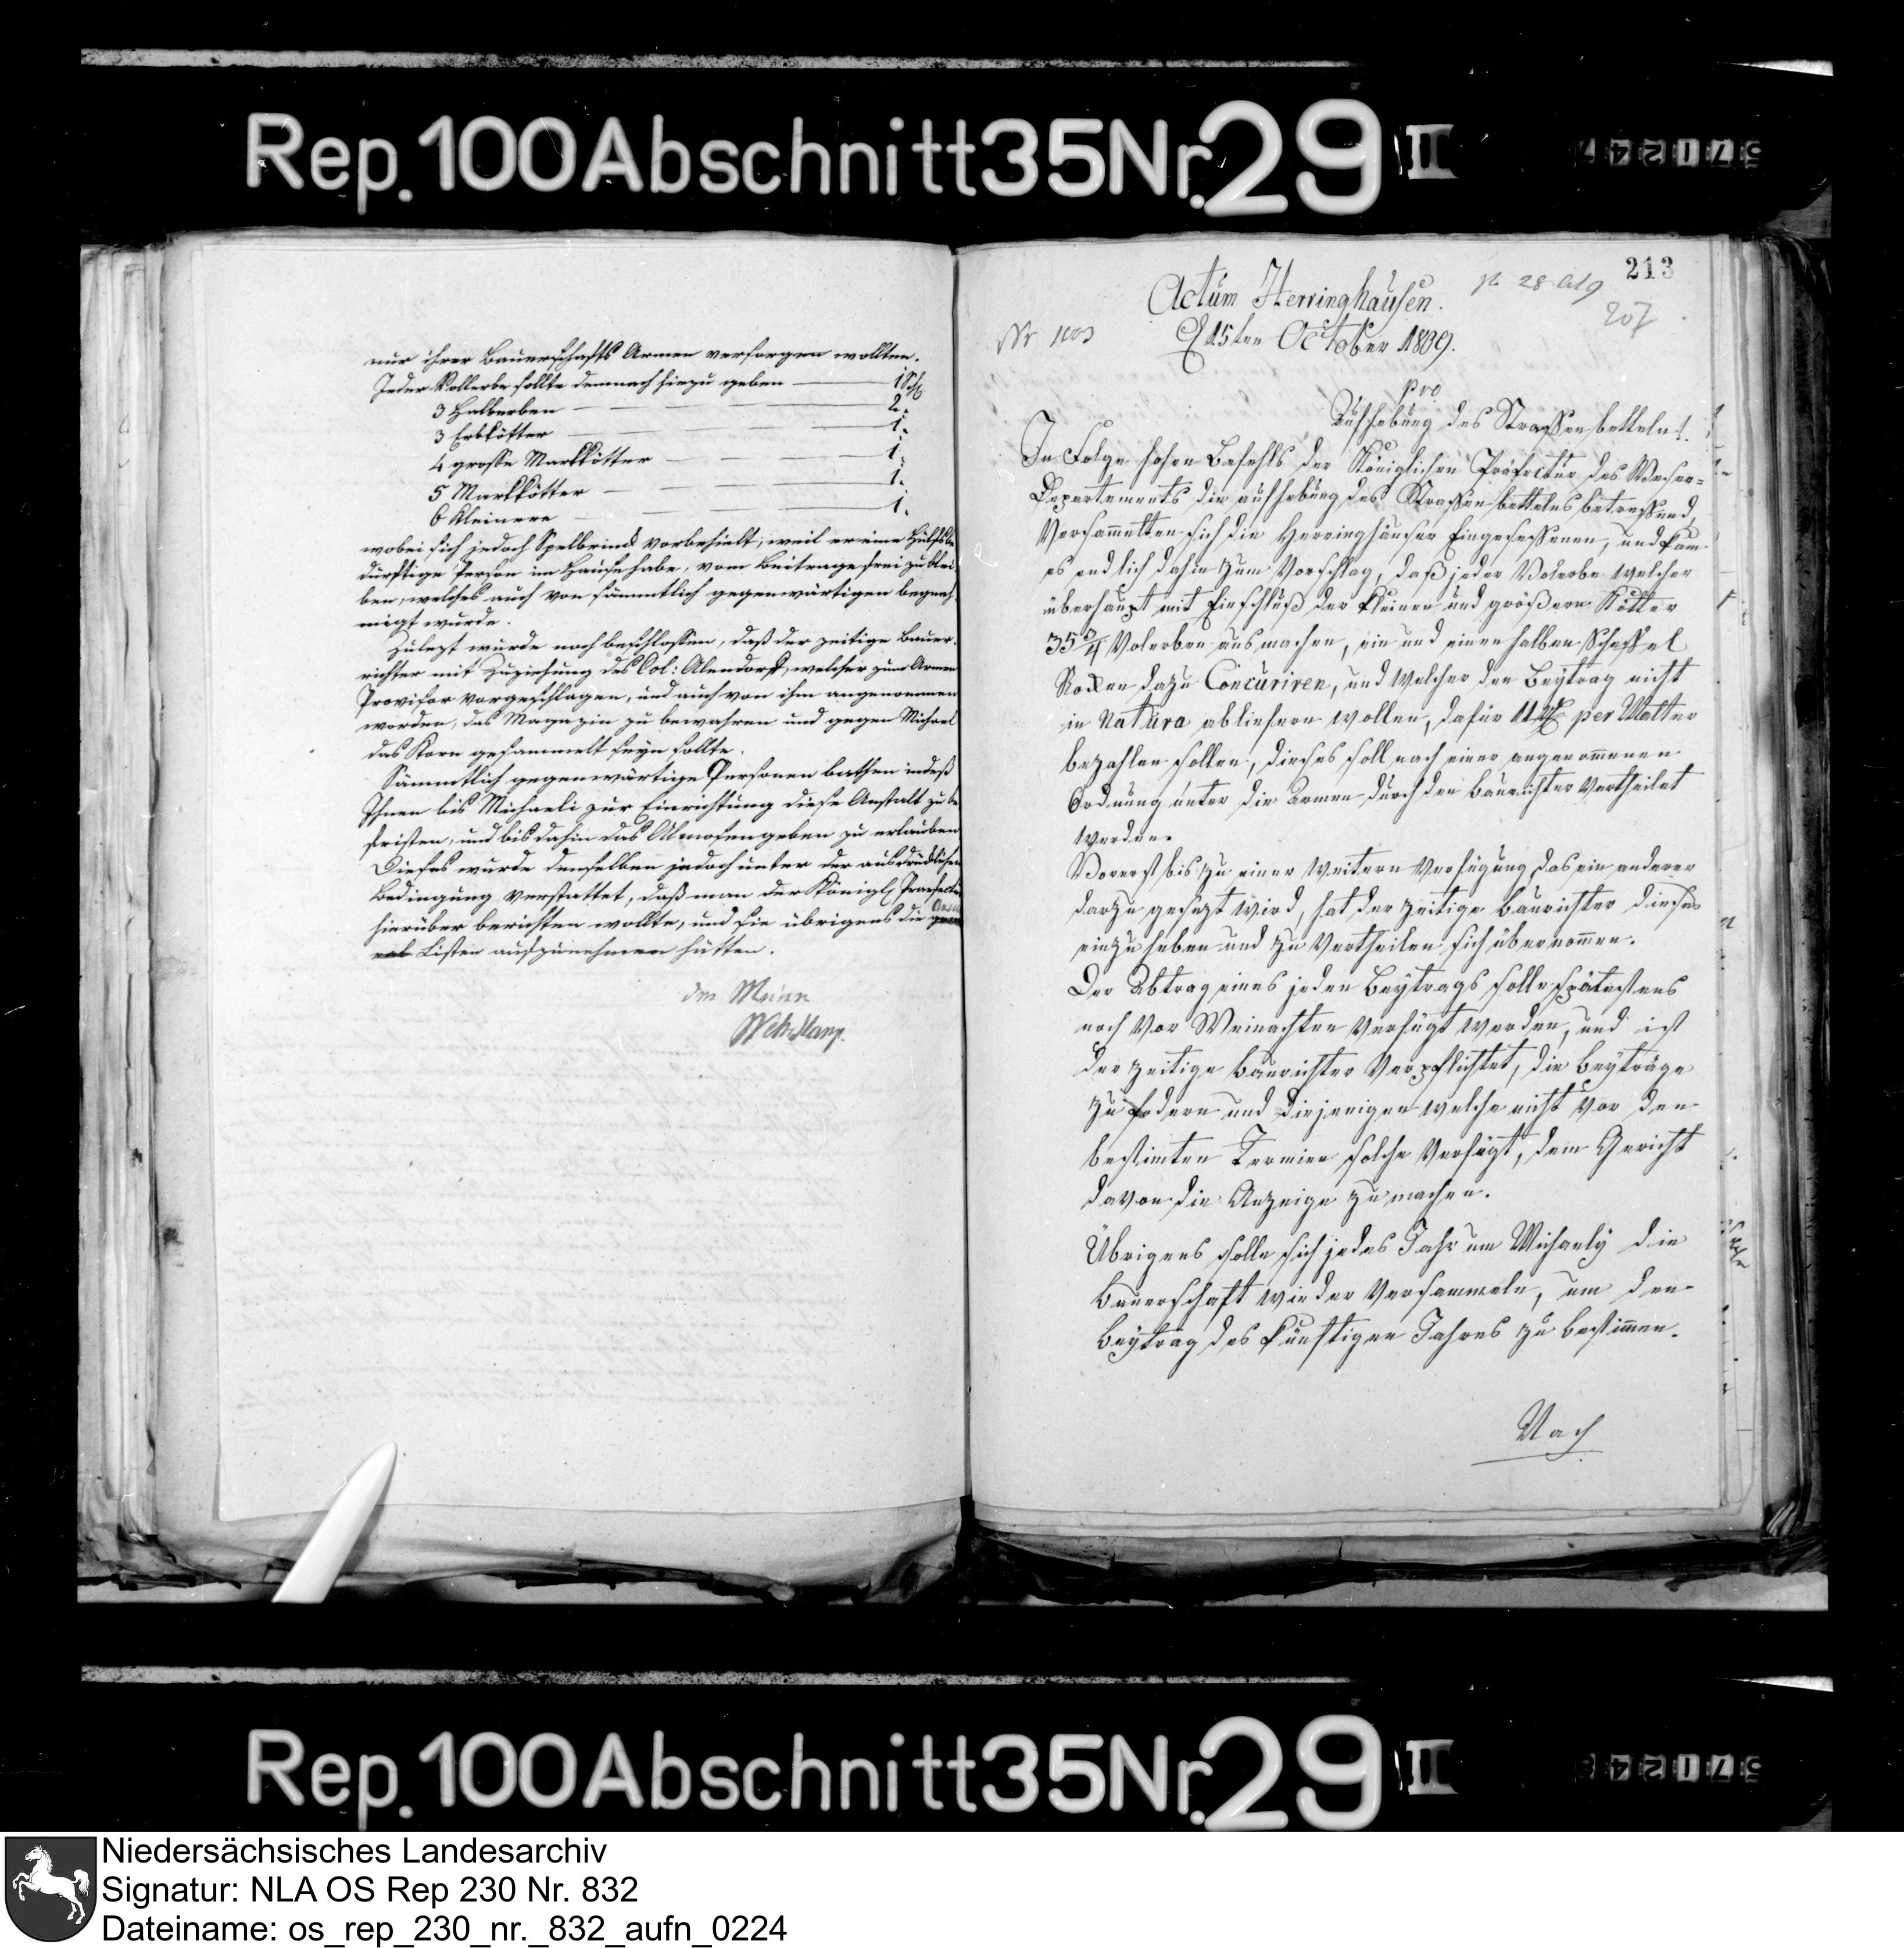 Rep. 100 Abschnitt 35 Nr. 29 II
571247
nur ihrer Bauerschafts Armen versorgen wollten.
Jeder Vollerbe sollte demnach hiezu geben — 1 Schfl
3 Halberben — 2.
3 Erbkötter — 1.
4 grosse Markkötter — 1.
5 Markkötter — 1.
6 Kleinere — 1.
wobei sich jedoch Spelbrink vorbehielt, weil er eine Hülfsbe
dürftige Person im Hause habe, vom Beitrage frei zu blei
ben, welches auch von sämmtlich gegenwärtigen geneh
migt wurde.
Zulezt wurde noch beschlossen, daß der zeitige Bauer-
richter mit Zuziehung des Col: Alendorf, welcher zum Armen
Provisor vorgeschlagen, und auch von ihm angenommen
worden, das Magazin zu bewahren und gegen Michael
das Korn gesammelt seyn sollte.
Sämmtlich gegenwärtige Personen bathen indeß
Ihnen bis Michaeli zur Einrichtung diese Anstalt zu be
fristen, und bis dahin das Almosengeben zu erlauben
Dieses wurde denselben jedoch unter der ausdrücklichen
Bedingung verstattet, daß man der Königl. Praefectur
hierüber berichten wollte, und sie übrigens die
Listen aufzunehmen hätten.
der Maire
213
Actum Herringhausen.
207
15ten October 1809.
pro
Aufhebung des Strassenbettelns.
In Folge hohen Befehls der Königlichen Präfectur des Weser-
Departements die aufhebung des Strassenbettelns betreffend,
Versammelten sich die Herringhäuser Eingesessenen, und kam
es endlich dahin zum Vorschlag, daß jeder Volerbe welcher
überhaupt mit Einschluß der kleinen und größern Kötter
35 3/4 Volerben ausmachen, ein und einen halben Scheffel
Rocken dazu Concuriren, und welcher den Beytrag nicht
in Natura abliefern wollen, dafür 11 per Malter
bezahlen sollen, dieses soll nach einer angenom̄enen
Ordnung unter die Armen durch den Baurichter vertheilet
werden.
Vorerst bis zu einer weitern Verfügung das ein anderer
darzu gesezt wird, hat der zeitige Baurichter dieses
einzuheben und zu vertheilen sich übernom̄en.
Der Abtrag eines jeden Beytrags solle spätestens
noch vor Weinachten verfügt werden, und ist
der zeitige Baurichter verpflichtet, die Beyträge
zu fodern und diejenigen welche nicht vor den
bestimten Termin solche verfügt, dem Gericht
davon die Anzeige zu machen.
Übrigens solle sich jedes Jahr um Michaely die
Bauerschaft wieder versammeln, um den
Beytrag des künftigen Jahres zu bestim̄en.
Nach
Rep. 100 Abschnitt 35 Nr. 29 II
Niedersächsisches Landesarchiv
Signatur: NLA OS Rep 230 Nr. 832
Dateiname: os_rep_230_nr._832_aufn_0224